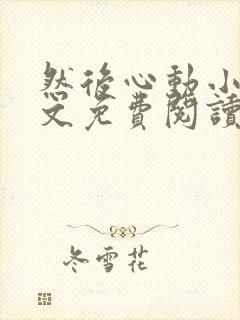 然后心動小
文免費閱讀
冬雪花